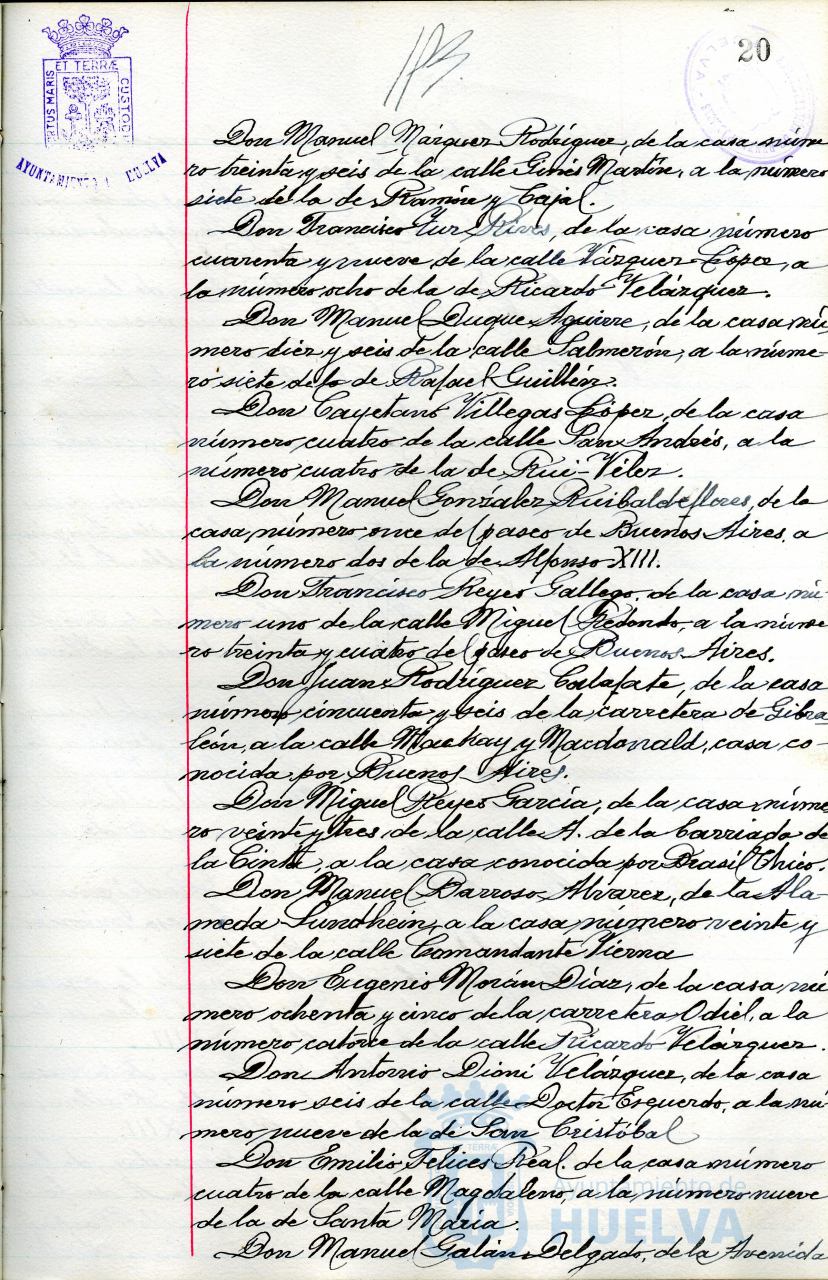 20
ET TERRÆ
CUSTODI
RTUS MARIS
AYUNTAMIENTO HUELVA
Don Manuel Márquez Rodríguez, de la casa núme
ro treinta y seis de la calle Ginés Martín, a la número
siete de la de Ramón y Cajal.
Don Francisco Tur Rives, de la casa número
cuarenta y nueve de la calle Vázquez López, a
la número ocho de la de Ricardo Velázquez.
Don Manuel Duque Aguirre, de la casa nú-
mero diez y seis de la calle Salmerón, a la núme-
ro siete de la de Rafael Guillén.
Don Cayetano Villegas López, de la casa
número cuatro de la calle San Andrés, a la
número cuatro de la de Rui-Vélez.
Don Manuel González Ruibaldeflores, de la
casa número once del paseo de Buenos Aires, a
la número dos de la de Alfonso XIII.
Don Francisco Reyes Gallego, de la casa nú-
mero uno de la calle Miguel Redondo, a la núme
ro treinta y cuatro del paseo de Buenos Aires.
Don Juan Rodríguez Calafate, de la casa
número cincuenta y seis de la carretera de Gibra
león, a la calle Mackay y Macdonald, casa co-
nocida por Buenos Aires.
Don Miguel Reyes García, de la casa núme
ro veinte y tres de la calle A. de la barriada de
la Cinta, a la casa conocida por Brasil Chico.
Don Manuel Barroso Alvarez, de la Ala-
meda Sundhein, a la casa número veinte y
siete de la calle Comandante Vierna
Don Eugenio Morán Díaz, de la casa nú
mero ochenta y cinco de la carretera Odiel, a la
número catorce de la calle Ricardo Velázquez.
Don Antonio Dioni Velázquez, de la casa
número seis de la calle Doctor Esquerdo, a la nú
mero nueve de la de San Cristóbal
Don Emilio Felices Real. de la casa número
cuatro de la calle Magdalena, a la número nueve
de la de Santa María.
Don Manuel Galán Delgado, de la Avenida
Ayuntamiento de
HUELVA